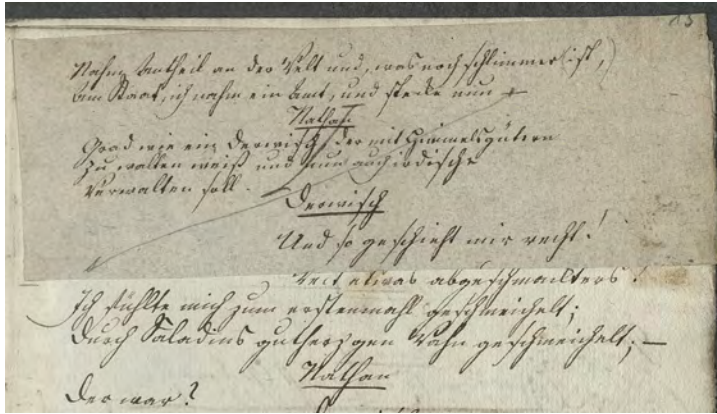 13
Nahm Antheil an der Welt und, was noch schlimmer ist,
am Staat, ich nahm ein Amt, und stecke nun
Nathan
Grad wie ein Derwisch der mit Himmelsgütern
zu walten weiß und nun auch irdische
Verwalten soll.
Derwisch
Und so geschieht mir recht!
etwas abgeschmackters!
Ich fühlte mich zum erstenmahl geschmeichelt;
Durch Saladins gutherzgen Wahn geschmeichelt; —
Nathan
Der war?